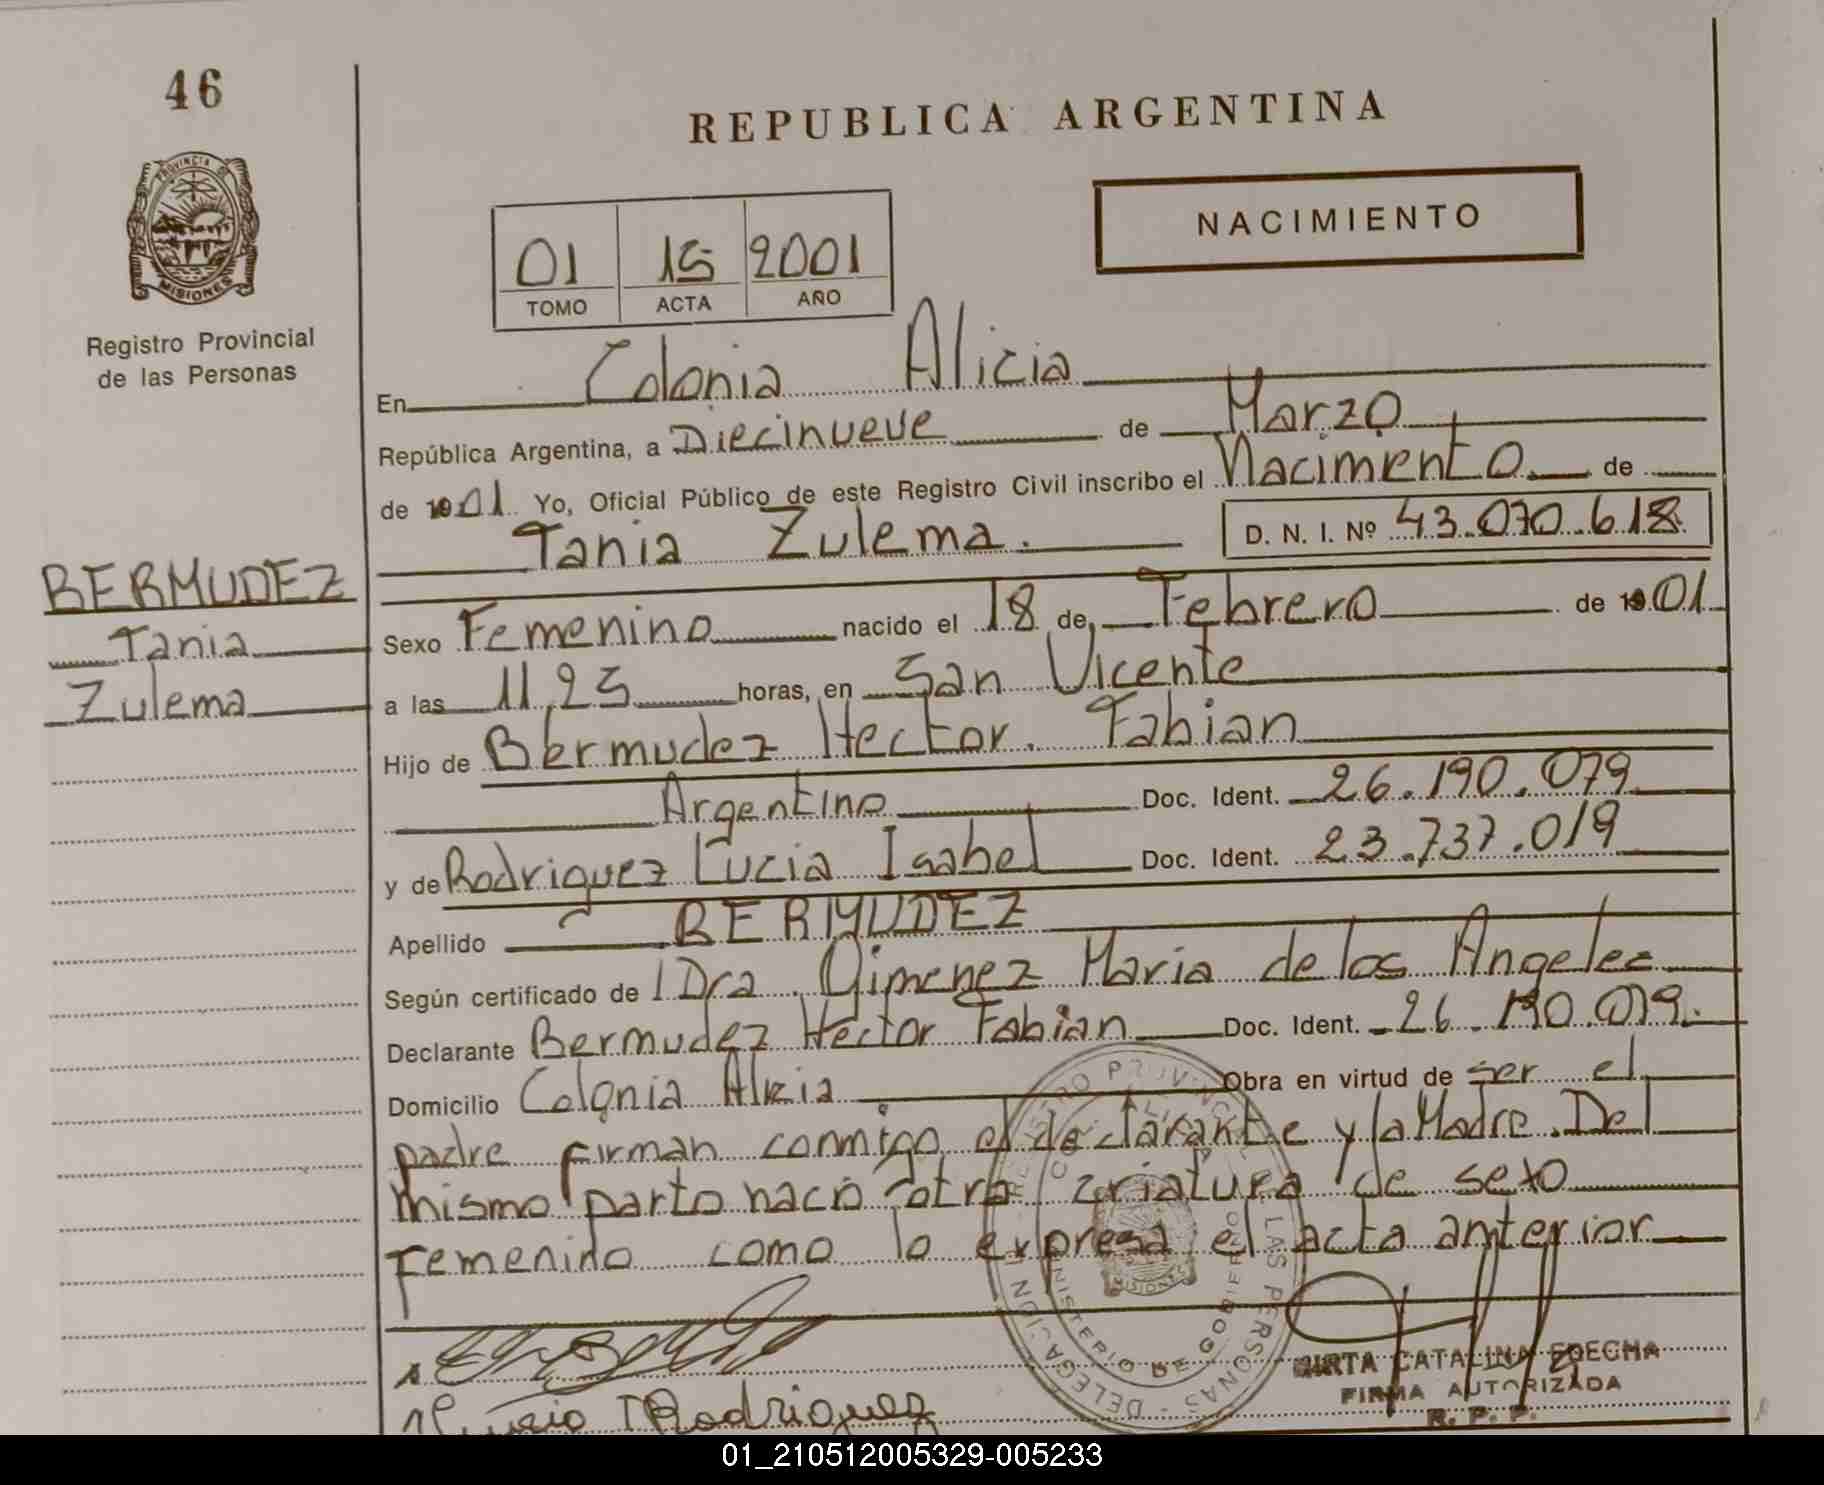 46
REPUBLICA ARGENTINA
PROVINCIA DE
MISIONES
NACIMIENTO
01 15 2001
TOMO ACTA AÑO
Registro Provincial
de las Personas
En Colonia Alicia
República Argentina, a Diecinueve de Marzo
de 1901 Yo, Oficial Público de este Registro Civil inscribo el Nacimento de
Tania Zulema. D. N. I. Nº 43.070.618
BERMUDEZ
Tania
Zulema
Sexo Femenino nacido el 18 de Febrero de 1901
a las 11,25 horas, en San Vicente
Hijo de Bermudez Hector. Fabian
Argentino Doc. Ident. 26.190.079
y de Rodriguez Lucia Isabel Doc. Ident. 23.737.019
Apellido BERMUDEZ
Según certificado de Dra. Gimenez Maria de los Angeles
Declarante Bermudez Hector Fabian Doc. Ident. 26.190.079.
Domicilio Colonia Alicia Obra en virtud de ser el
padre firman conmigo el declarante y la Madre. Del
mismo parto nacio otra criatura de sexo
Femenino como lo expresa el acta anterior
REGISTRO PROVINCIAL DE LAS PERSONAS - DELEGACION
MINISTERIO DE GOBIERNO
COLONIA ALICIA
MISIONES
Rodriguez
MIRTA CATALINA
FIRMA AUTORIZADA
R. P. P.
01_210512005329-005233